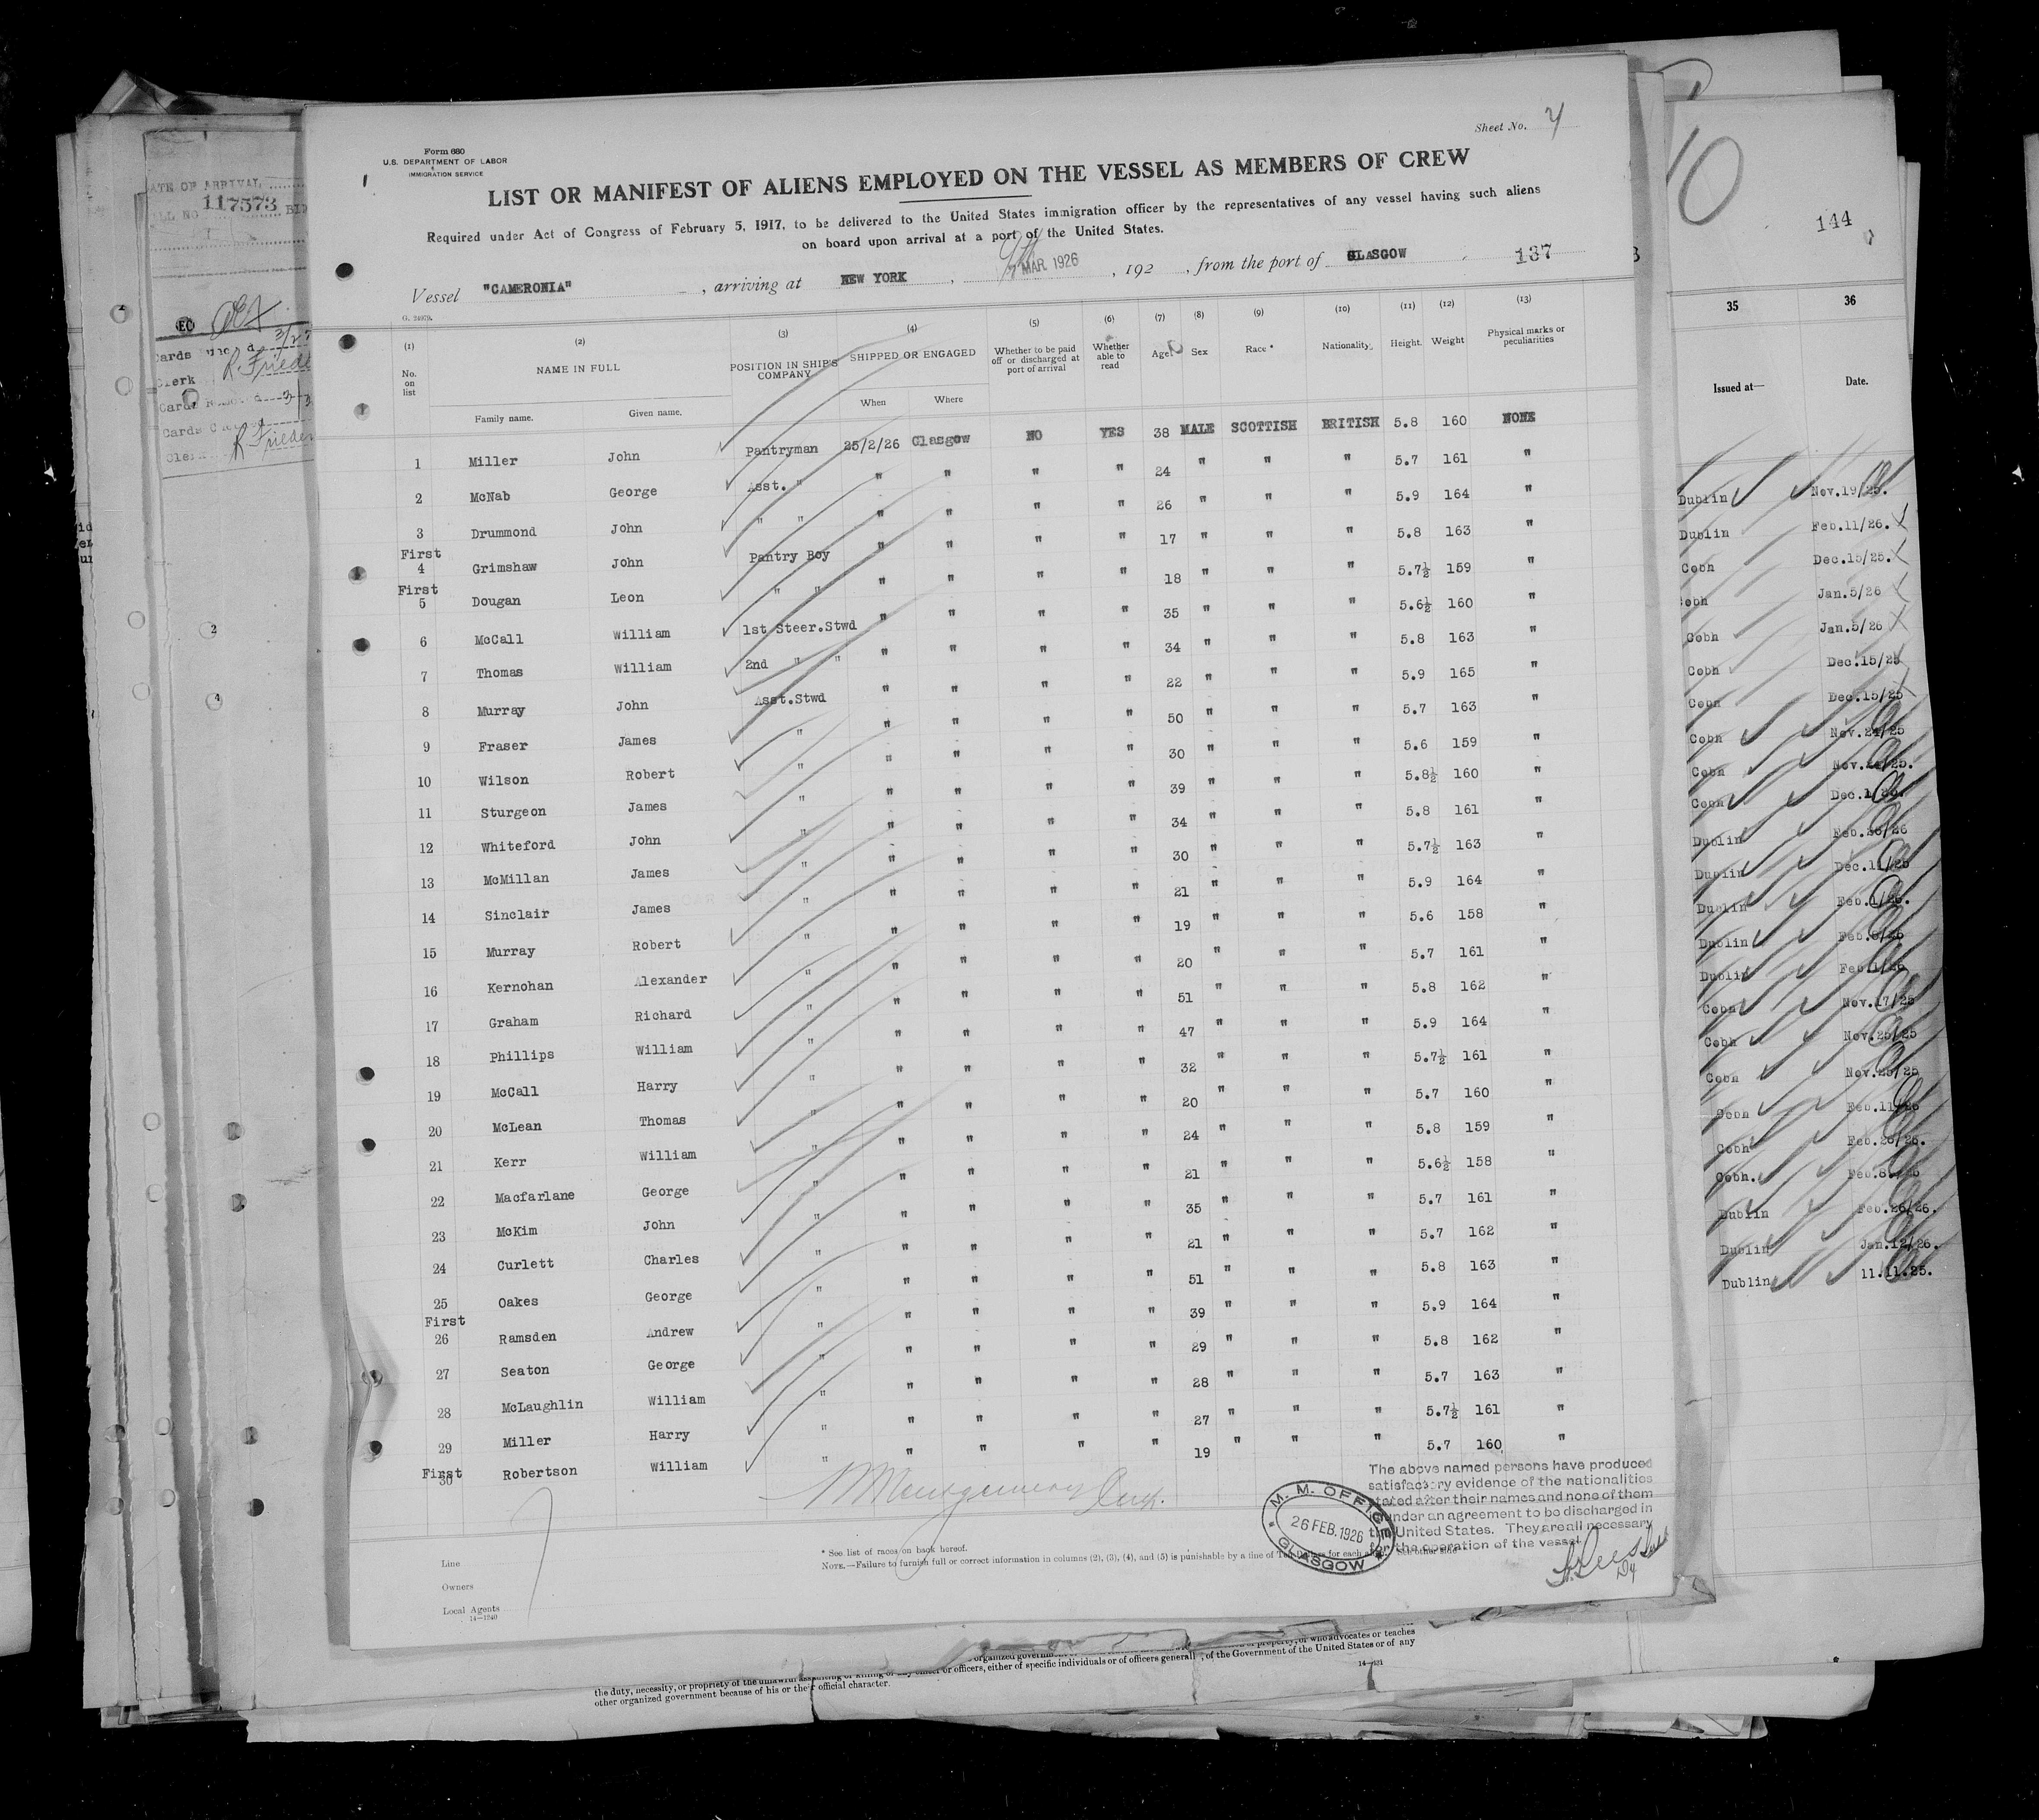 Sheet No. 4
Form 680
U.S. DEPARTMENT OF LABOR
IMMIGRATION SERVICE
LIST OR MANIFEST OF ALIENS EMPLOYED ON THE VESSEL AS MEMBERS OF CREW
Required under Act of Congress of February 5, 1917, to be delivered to the United States immigration officer by the representatives of any vessel having such aliens
on board upon arrival at a port of the United States.
Vessel "CAMERONIA" , arriving at NEW YORK , 7 MAR 1926 , 192 , from the port of GLASGOW 137
(1) (2) (3) (4) (5) (6) (7) (8) (9) (10) (11) (12) (13)
No. on list NAME IN FULL POSITION IN SHIP'S COMPANY SHIPPED OR ENGAGED Whether to be paid off or discharged at port of arrival Whether able to read Age Sex Race * Nationality Height Weight Physical marks or peculiarities
Family name. Given name. When Where
1 Miller John Pantryman 25/2/26 Glasgow NO YES 38 MALE SCOTTISH BRITISH 5.8 160 NONE
2 McNab George Asst. " " " " " 24 " " " 5.7 161 "
3 Drummond John " " " " " " 26 " " " 5.9 164 "
First
4 Grimshaw John Pantry Boy " " " " 17 " " " 5.8 163 "
First
5 Dougan Leon " " " " " " 18 " " " 5.7½ 159 "
6 McCall William 1st Steer.Stwd " " " " 35 " " " 5.6½ 160 "
7 Thomas William 2nd " " " " " " 34 " " " 5.8 163 "
8 Murray John Asst.Stwd " " " " 22 " " " 5.9 165 "
9 Fraser James " " " " " 50 " " " 5.7 163 "
10 Wilson Robert " " " " " 30 " " " 5.6 159 "
11 Sturgeon James " " " " " 39 " " " 5.8½ 160 "
12 Whiteford John " " " " " 34 " " " 5.8 161 "
13 McMillan James " " " " " 30 " " " 5.7½ 163 "
14 Sinclair James " " " " " 21 " " " 5.9 164 "
15 Murray Robert " " " " " 19 " " " 5.6 158 "
16 Kernohan Alexander " " " " " 20 " " " 5.7 161 "
17 Graham Richard " " " " " 51 " " " 5.8 162 "
18 Phillips William " " " " " 47 " " " 5.9 164 "
19 McCall Harry " " " " " 32 " " " 5.7½ 161 "
20 McLean Thomas " " " " " 20 " " " 5.7 160 "
21 Kerr William " " " " " 24 " " " 5.8 159 "
22 Macfarlane George " " " " " 21 " " " 5.6½ 158 "
23 McKim John " " " " " 35 " " " 5.7 161 "
24 Curlett Charles " " " " " 21 " " " 5.7 162 "
25 Oakes George " " " " " 51 " " " 5.8 163 "
First
26 Ramsden Andrew " " " " " 39 " " " 5.9 164 "
27 Seaton George " " " " " 29 " " " 5.8 162 "
28 McLaughlin William " " " " " 28 " " " 5.7 163 "
29 Miller Harry " " " " " 27 " " " 5.7½ 161 "
First
30 Robertson William " " " " " 19 " " " 5.7 160 "
The above named persons have produced
satisfactory evidence of the nationalities
stated after their names and none of them
under an agreement to be discharged in
the United States. They are all necessary
for the operation of the vessel
M. M. OFFICE
26 FEB. 1926
GLASGOW
* See list of races on back hereof.
NOTE.—Failure to furnish full or correct information in columns (2), (3), (4), and (5) is punishable by a fine of Ten Dollars for each alien. See other side
Line
Owners
Local Agents
14—1240
DATE OF ARRIVAL
117573
Clerk R. Frieden
R. Frieden
10
144
35 36
Issued at— Date.
Dublin Nov.19/25.
Dublin Feb.11/26.
Cobh Dec.15/25.
Cobh Jan.5/26
Cobh Jan.5/26
Cobh Dec.15/25
Cobh Dec.15/25
Cobh Nov.24/25
Cobh
Cobh
Dublin
Dublin Dec.11/25
Dublin
Dublin
Dublin
Cobh Nov.17/25
Cobh Nov.25/25
Cobh Nov.25/25
Cobh Feb.11/26
Cobh Feb.26/26.
Cobh.
Dublin Feb.26/26.
Dublin Jan.12/26.
Dublin 11.11.25.
the duty, necessity, or propriety of the unlawful assaulting or killing of any officer or officers, either of specific individuals or of officers generally, of the Government of the United States or of any
other organized government because of his or their official character.